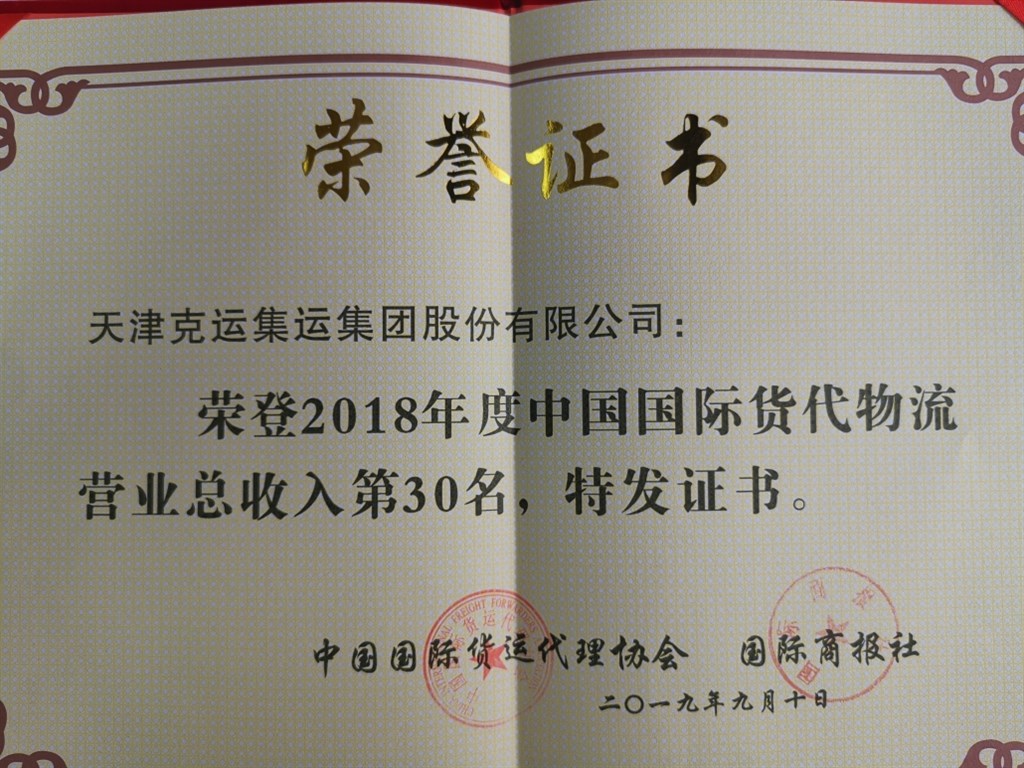 荣誉证书
天津克运集运集团股份有限公司：
荣登2018年度中国国际货代物流
营业总收入第30名，特发证书。
中国国际货运代理协会 国际商报社
二〇一九年九月十日